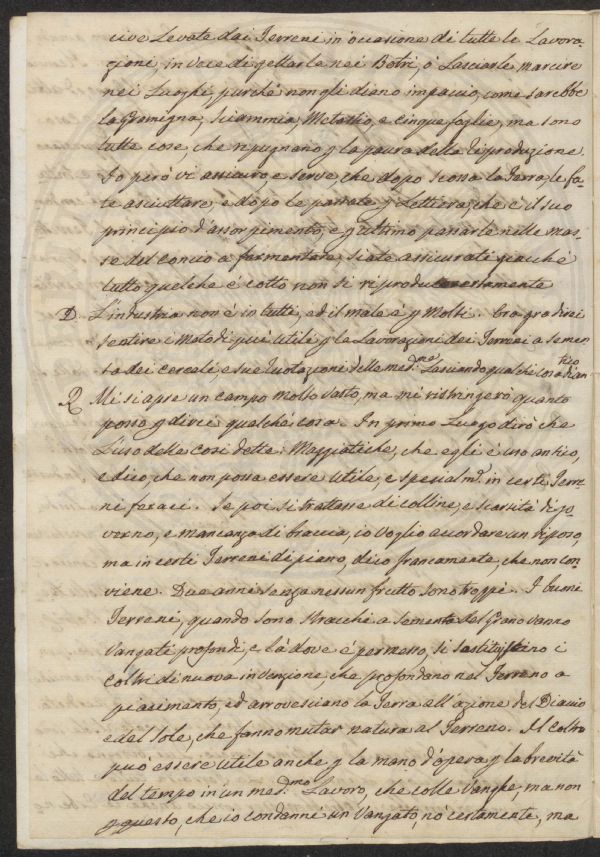 cive Levate dai Terreni in ocasione di tutte le Lavora-
zioni, in vece di gettarle nei Botri, ò Lasciarle marcire
nei Luoghi, purchè non gli diano impaccio, come sarebbe
la Gramigna, Sciammia, e Cinque foglie, ma sono
tutte cose, che ripugnano p la paura della riproduzione.
Io però vi assicuro, e serve, che dopo scossa la Terra, le fa-
te asciuttare, e dopo le passate p Lettiera, che è il suo
principio d'assorpimento, e p ultimo passarle nelle mas-
se del Concio a fermentare, siate assicurati giacchè
tutto quelche è cotto non si riproduce certamente
D. L'industria non è in tutti, ed il male è p Molti. Ora gradirei
sentire i Metodi più utili p le Lavorazioni dei Terreni a semen-
ta dei cereali, e sue Ruotazioni delle med.me Lasciando qualche cosa d'an-
tico
R. Mi si apre un campo molto vasto, ma mi ristringerò quanto
posso p dirci qualche cosa. In primo Luogo dirò che
L'uso delle così dette Maggiatiche, che egli è uso antico,
e dico, che non possa essere utile, e special m. in certi Terre-
ni feraci. Se poi si trattasse di colline, e scarsità di go-
verno, e mancanza di braccia, io voglio accordare un riposo,
ma in certi Terreni di piano, dico francamente, che non con-
viene. Due anni senza nessun frutto sono troppi. I buoni
Terreni, quando sono stracchi a sementa del Grano vanno
Vangati profondi, e là dove è permesso, si sostituischino i
Coltri di nuova invenzione, che profondano nel Terreno a
piacimento, ed arrovesciano la Terra all'azione del Diacio
e del Sole, che fanno mutar natura al Terreno. Il Coltro
può essere utile anche p la mano d'opera, e p la brevità
del tempo in un med.mo Lavoro, che colle Vanghe, ma non
p questo, che io condanni un Vangato, nò certamente, ma